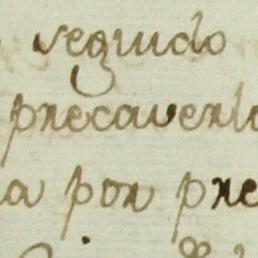 seguido
precaverlo
a por pre